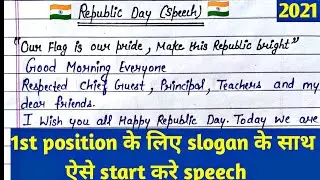 Republic Day (Speech)
2021
"Our Flag is our pride, Make this Republic bright"
Good Morning Everyone
Respected Chief Guest, Principal, Teachers and my
dear friends.
I Wish you all Happy Republic Day. Today we are
1st position के लिए slogan के साथ
ऐसे start करे speech